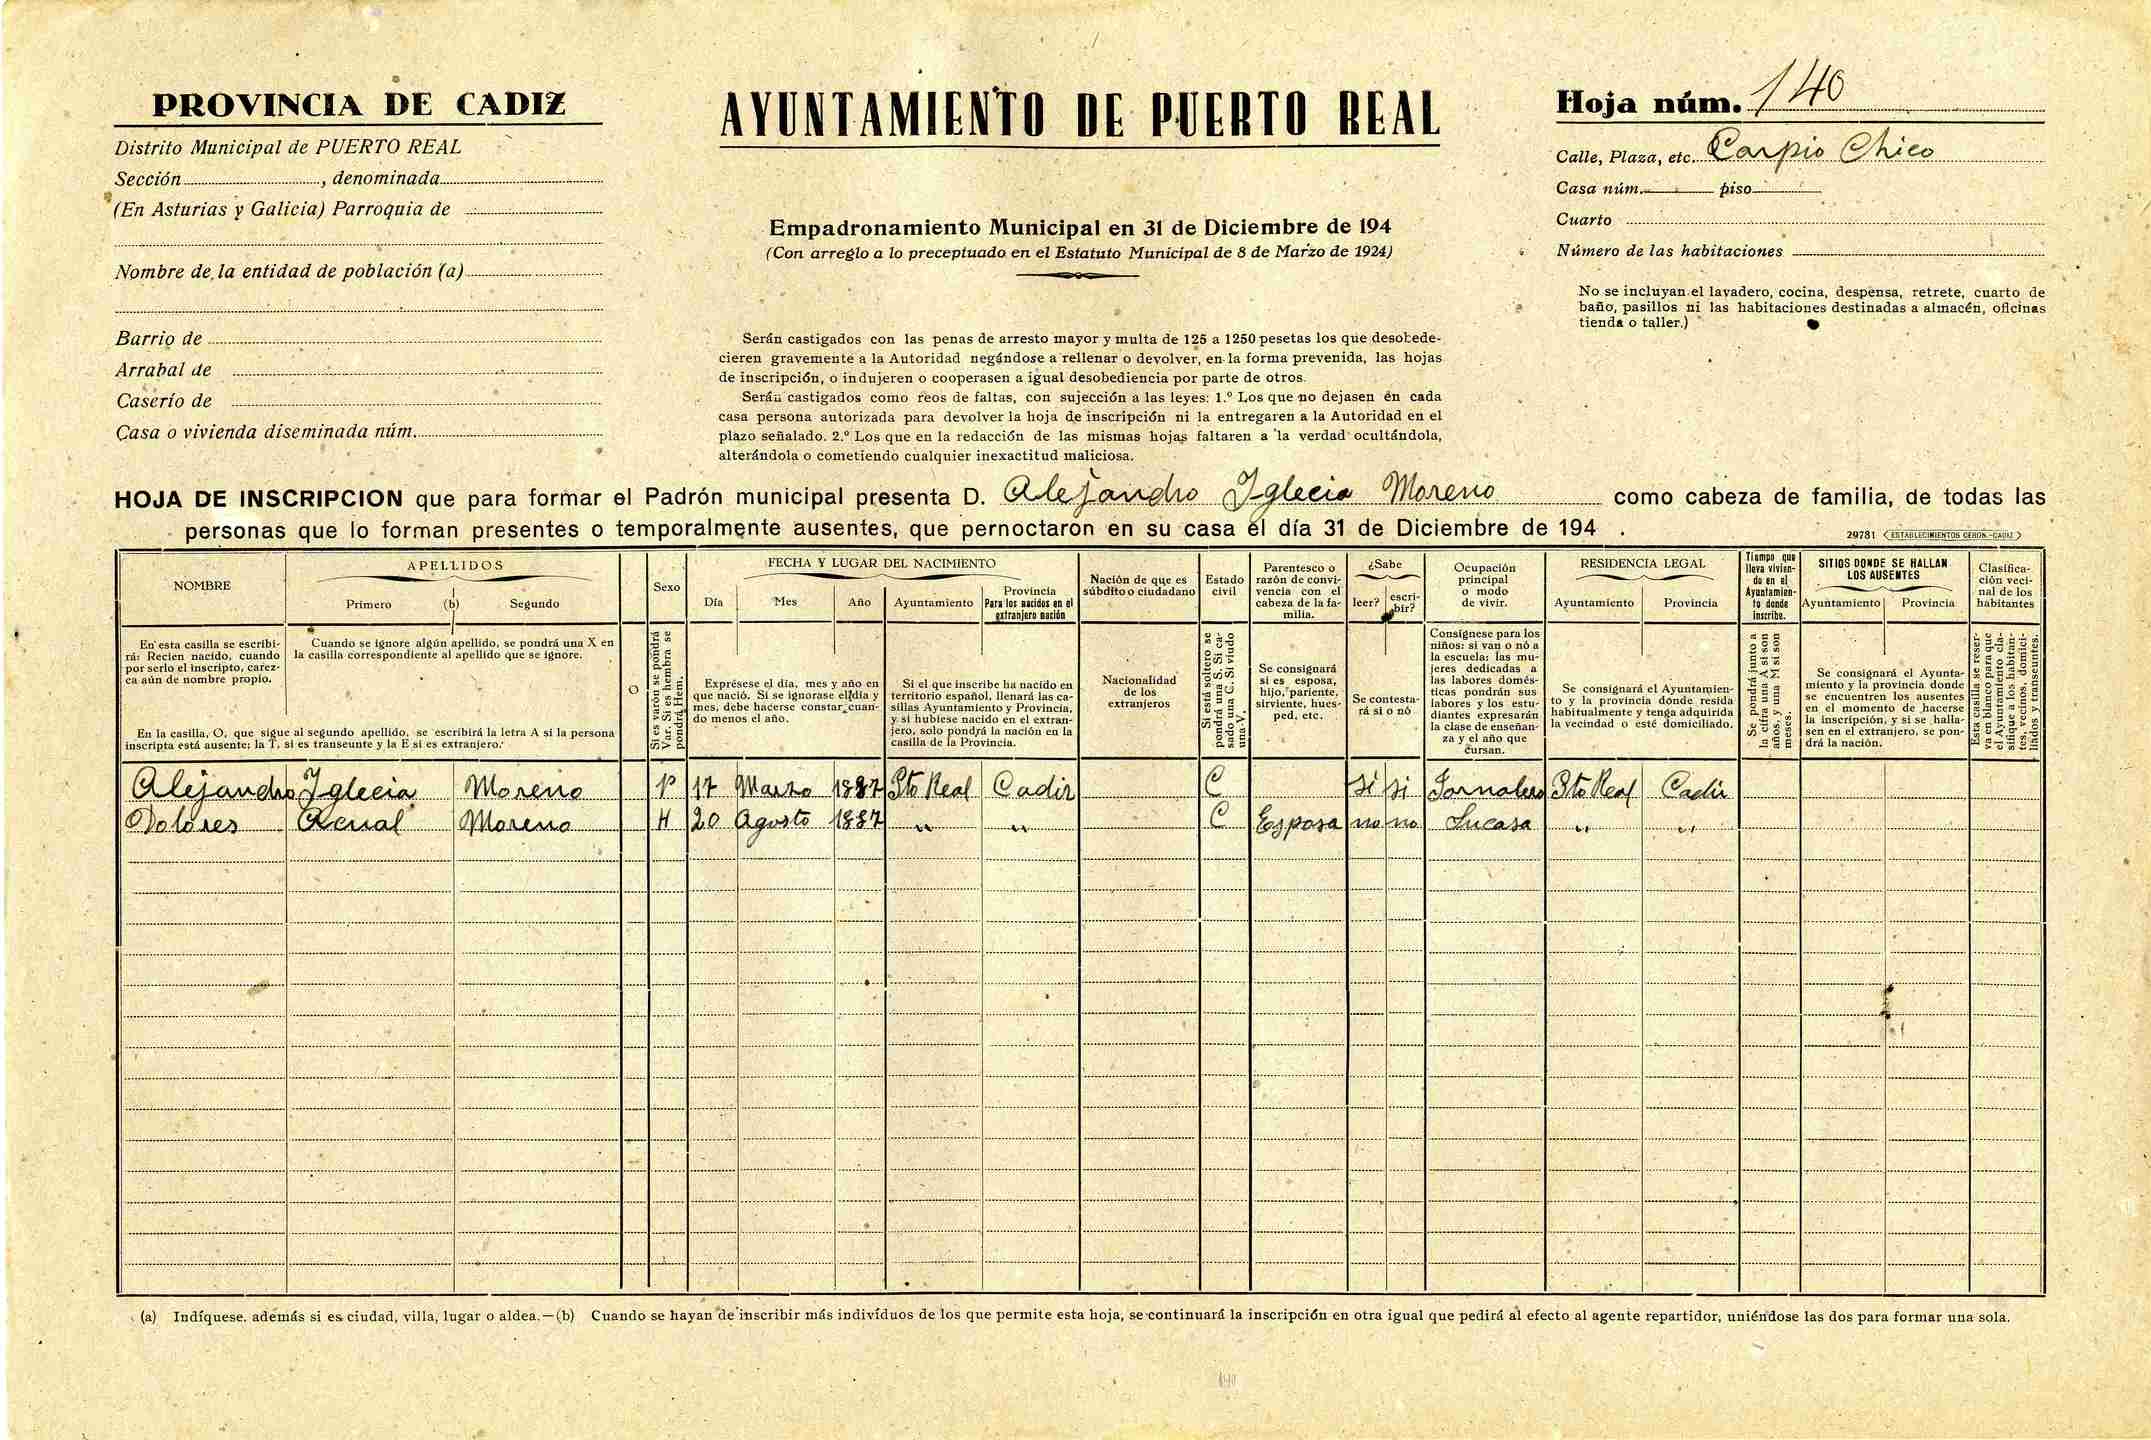 PROVINCIA DE CADIZ
Distrito Municipal de PUERTO REAL
Sección, denominada
(En Asturias y Galicia) Parroquia de
Nombre de la entidad de población (a)
Barrio de
Arrabal de
Caserío de
Casa o vivienda diseminada núm.
AYUNTAMIENTO DE PUERTO REAL
Empadronamiento Municipal en 31 de Diciembre de 194
(Con arreglo a lo preceptuado en el Estatuto Municipal de 8 de Marzo de 1924)
Serán castigados con las penas de arresto mayor y multa de 125 a 1250 pesetas los que desobede-
cieren gravemente a la Autoridad negándose a rellenar o devolver, en la forma prevenida, las hojas
de inscripción, o indujeren o cooperasen a igual desobediencia por parte de otros.
Serán castigados como reos de faltas, con sujección a las leyes: 1.º Los que no dejasen en cada
casa persona autorizada para devolver la hoja de inscripción ni la entregaren a la Autoridad en el
plazo señalado. 2.º Los que en la redacción de las mismas hojas faltaren a la verdad ocultándola,
alterándola o cometiendo cualquier inexactitud maliciosa.
Hoja núm. 140
Calle, Plaza, etc. Carpio Chico
Casa núm. piso
Cuarto
Número de las habitaciones
No se incluyan el lavadero, cocina, despensa, retrete, cuarto de
baño, pasillos ni las habitaciones destinadas a almacén, oficinas
tienda o taller.)
HOJA DE INSCRIPCION que para formar el Padrón municipal presenta D. Alejandro Iglecia Moreno como cabeza de familia, de todas las
personas que lo forman presentes o temporalmente ausentes, que pernoctaron en su casa el día 31 de Diciembre de 194 .
29781 ESTABLECIMIENTOS CERON.-CADIZ
NOMBRE
En esta casilla se escribi-
rá: Recien nacido, cuando
por serlo el inscripto, carez-
ca aún de nombre propio.
APELLIDOS
Primero (b) Segundo
Cuando se ignore algún apellido, se pondrá una X en
la casilla correspondiente al apellido que se ignore.
En la casilla, O, que sigue al segundo apellido, se escribirá la letra A si la persona
inscripta está ausente; la T, si es transeunte y la E si es extranjero.
O
Sexo
Si es varón se pondrá
Var. Si es hembra se
pondrá Hem.
FECHA Y LUGAR DEL NACIMIENTO
Día Mes Año Ayuntamiento
Provincia
Para los nacidos en el
extranjero nación
Exprésese el día, mes y año en
que nació. Si se ignorase el día y
mes, debe hacerse constar cuan-
do menos el año.
Si el que inscribe ha nacido en
territorio español, llenará las ca-
sillas Ayuntamiento y Provincia,
y si hubiese nacido en el extran-
jero, solo pondrá la nación en la
casilla de la Provincia.
Nación de que es
súbdito o ciudadano
Nacionalidad
de los
extranjeros
Estado
civil
Si está soltero se
pondrá una S. Si ca-
sado una C. Si viudo
una V.
Parentesco o
razón de convi-
vencia con el
cabeza de la fa-
milia.
Se consignará
si es esposa,
hijo, pariente,
sirviente, hues-
ped, etc.
¿Sabe
leer? escri-
bir?
Se contesta-
rá si o nó
Ocupación
principal
o modo
de vivir.
Consígnese para los
niños: si van o nó a
la escuela; las mu-
jeres dedicadas a
las labores domés-
ticas pondrán sus
labores y los estu-
diantes expresarán
la clase de enseñan-
za y el año que
cursan.
RESIDENCIA LEGAL
Ayuntamiento Provincia
Se consignará el Ayuntamien-
to y la provincia donde resida
habitualmente y tenga adquirida
la vecindad o esté domiciliado.
Tiempo que
lleva vivien-
do en el
Ayuntamien-
to donde
inscribe.
Se pondrá junto a
la cifra una A si son
años, y una M si son
meses.
SITIOS DONDE SE HALLAN
LOS AUSENTES
Ayuntamiento Provincia
Se consignará el Ayunta-
miento y la provincia donde
se encuentren los ausentes
en el momento de hacerse
la inscripción, y si se halla-
sen en el extranjero, se pon-
drá la nación.
Clasifica-
ción veci-
nal de los
habitantes
Esta casilla se reser-
va en blanco para que
el Ayuntamiento cla-
sifique a los habitan-
tes, vecinos, domici-
liados y transeuntes.
Alejandro Iglecia Moreno 17 Marzo 1887 Pto Real Cadiz C si si Jornalero Pto Real Cadiz
Dolores Moreno H 20 Agosto 1887 " " C Esposa no no Sucasa " "
(a) Indíquese. además si es ciudad, villa, lugar o aldea.—(b) Cuando se hayan de inscribir más indivíduos de los que permite esta hoja, se continuará la inscripción en otra igual que pedirá al efecto al agente repartidor, uniéndose las dos para formar una sola.
140